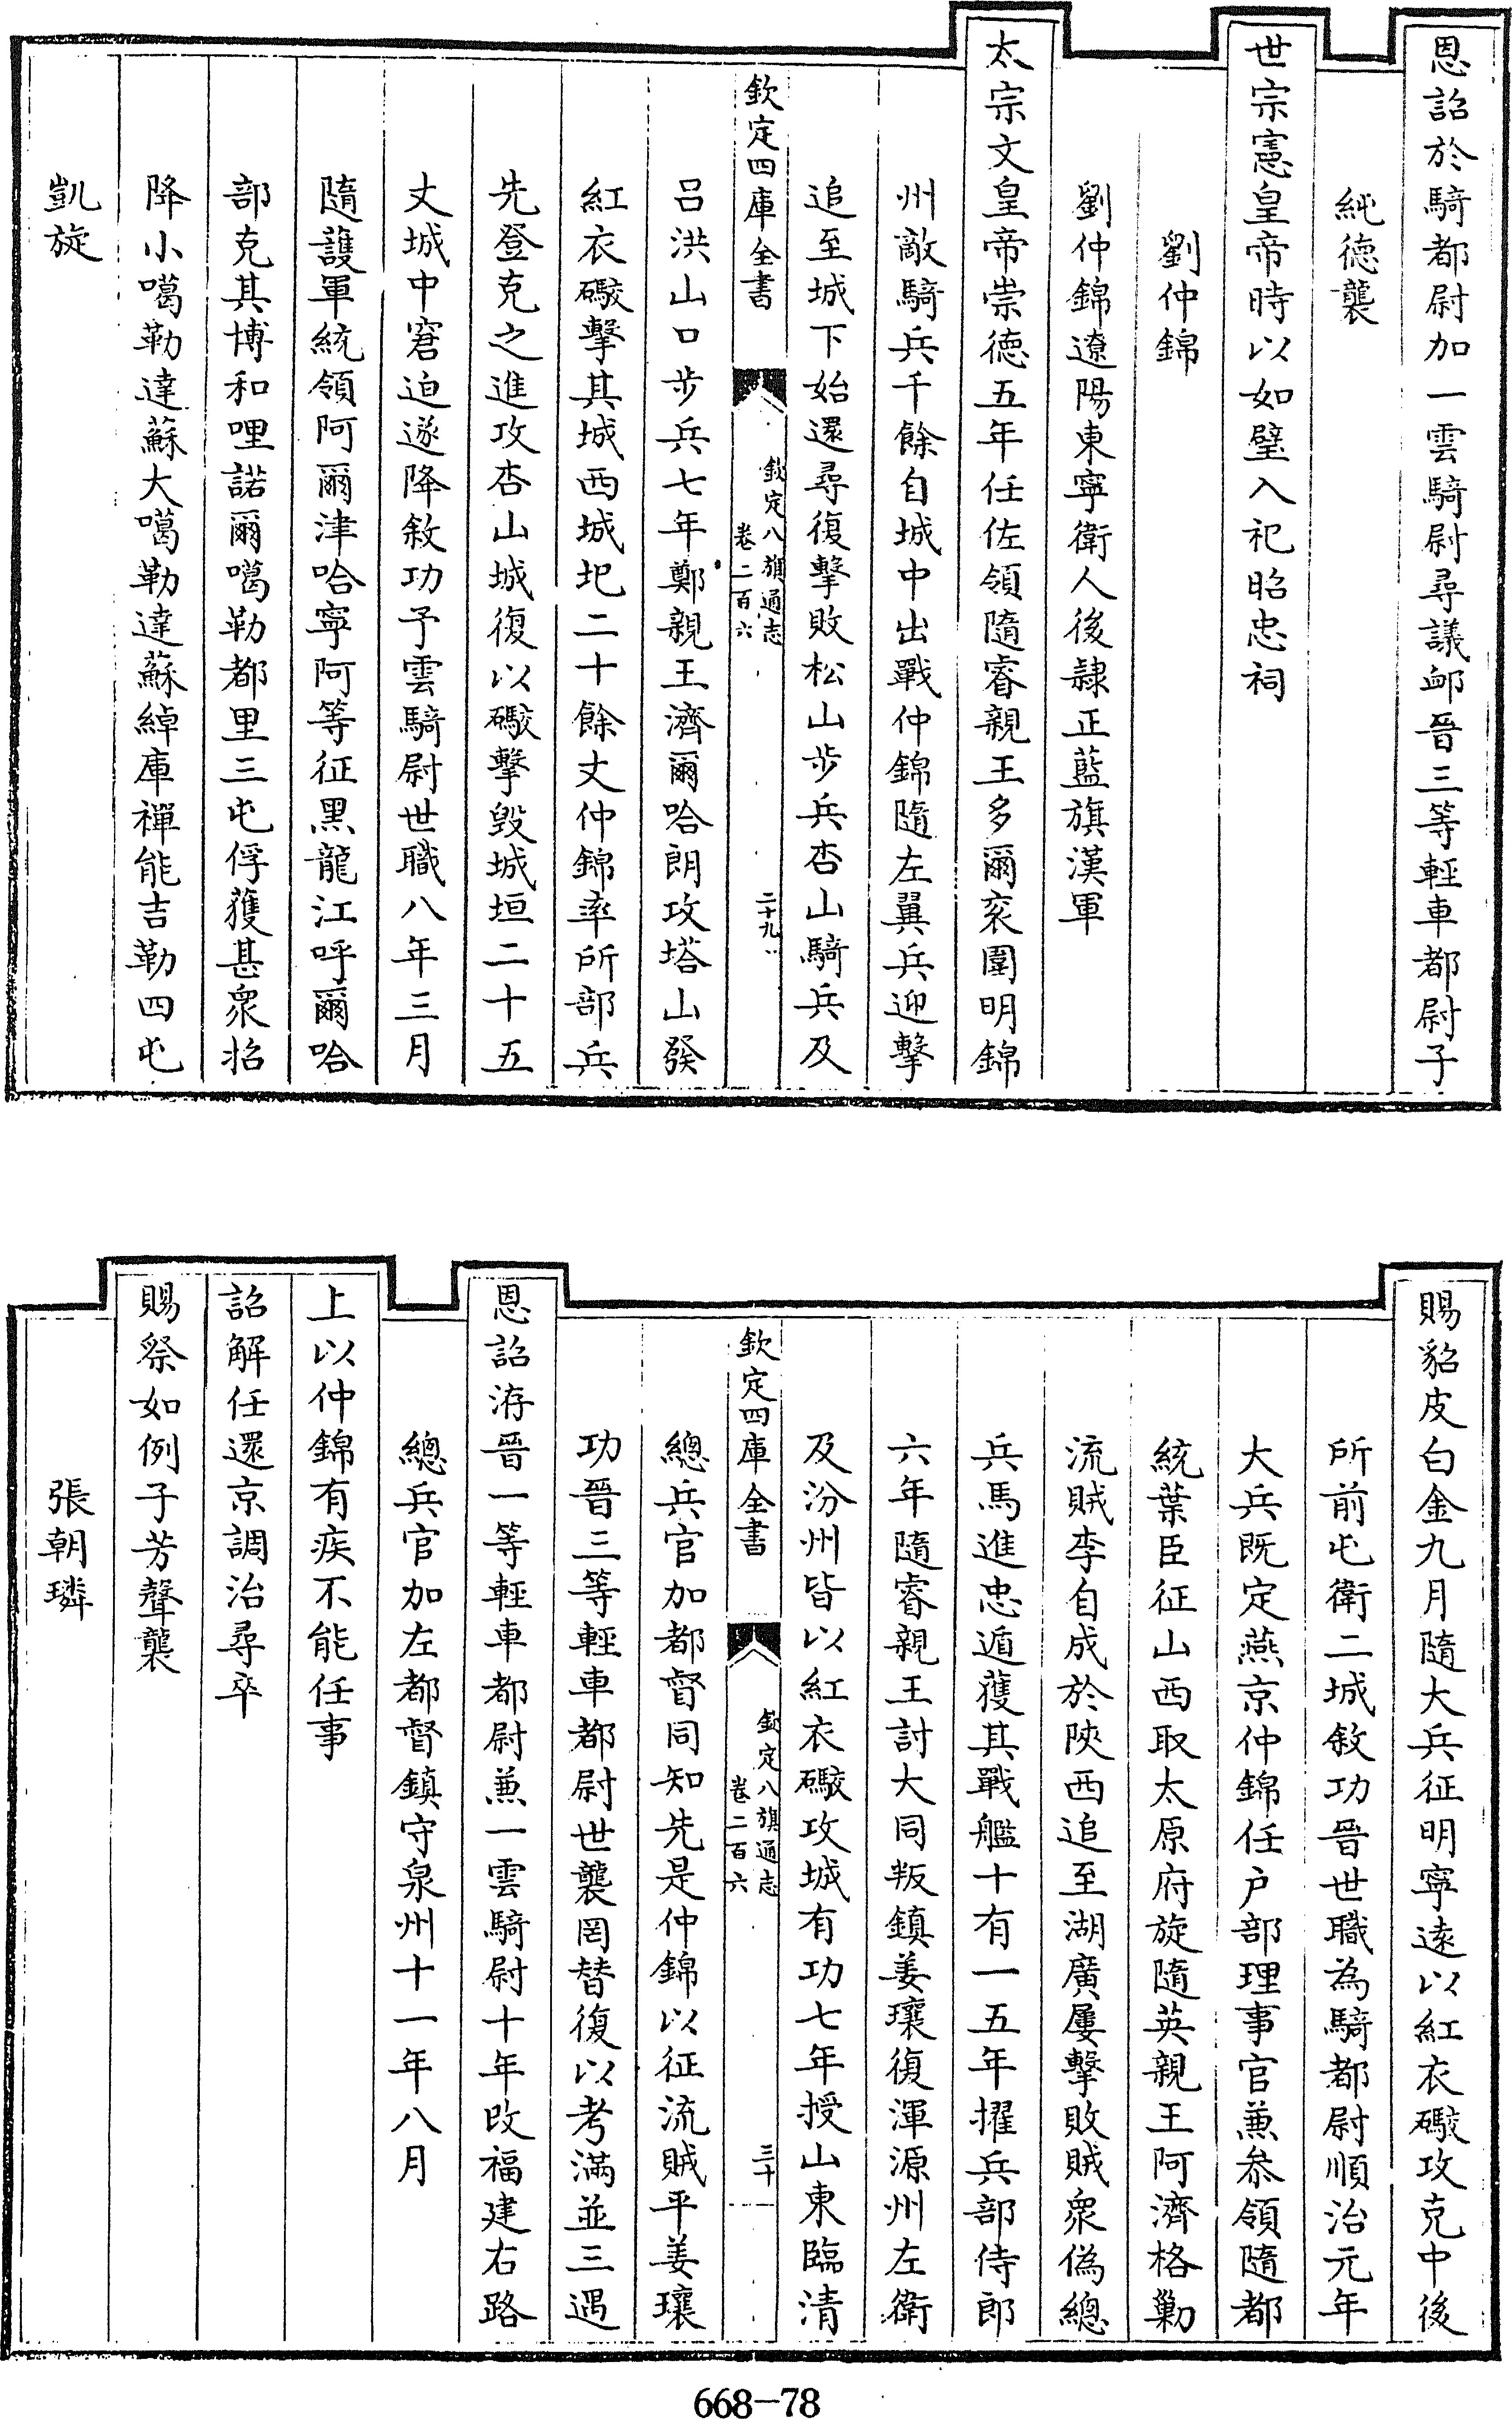 恩詔於騎都尉加一雲騎尉尋議䘏晉三等輕車都尉子
純德襲
世宗憲皇帝時以如璧入祀昭忠祠
劉仲錦
劉仲錦遼陽東寧衛人後隷正藍旗漢軍
太宗文皇帝崇德五年任佐領隨睿親王多爾衮圍明錦
州敵騎兵千餘自城中出戰仲錦隨左翼兵迎擊
追至城下始還尋復擊敗松山步兵杏山騎兵及
欽定四庫全書
欽定八旗通志
卷二百六
二十九
呂洪山口步兵七年鄭親王濟爾哈朗攻塔山發
紅衣礮擊其城西城圮二十餘丈仲錦率所部兵
先登克之進攻杏山城復以礮擊毀城垣二十五
丈城中窘迫遂降敘功予雲騎尉世職八年三月
隨護軍統領阿爾津哈寧阿等征黑龍江呼爾哈
部克其博和哩諾爾噶勒都里三屯俘獲甚衆招
降小噶勒達蘇大噶勒達蘇綽庫禪能吉勒四屯
凱旋
賜貂皮白金九月隨大兵征明寧遠以紅衣礮攻克中後
所前屯衛二城敘功晉世職為騎都尉順治元年
大兵既定燕京仲錦任户部理事官兼叅領隨都
統葉臣征山西取太原府旋隨英親王阿濟格勦
流賊李自成於陜西追至湖廣屢擊敗賊衆偽總
兵馬進忠遁獲其戰艦十有一五年擢兵部侍郎
六年隨睿親王討大同叛鎮姜瓖復渾源州左衛
及汾州皆以紅衣礮攻城有功七年授山東臨清
欽定四庫全書
欽定八旗通志
卷二百六
三十
總兵官加都督同知先是仲錦以征流賊平姜瓖
功晉三等輕車都尉世襲罔替復以考滿並三遇
恩詔洊晉一等輕車都尉兼一雲騎尉十年改福建右路
總兵官加左都督鎮守泉州十一年八月
上以仲錦有疾不能任事
詔解任還京調治尋卒
賜祭如例子芳聲襲
張朝璘
668-78